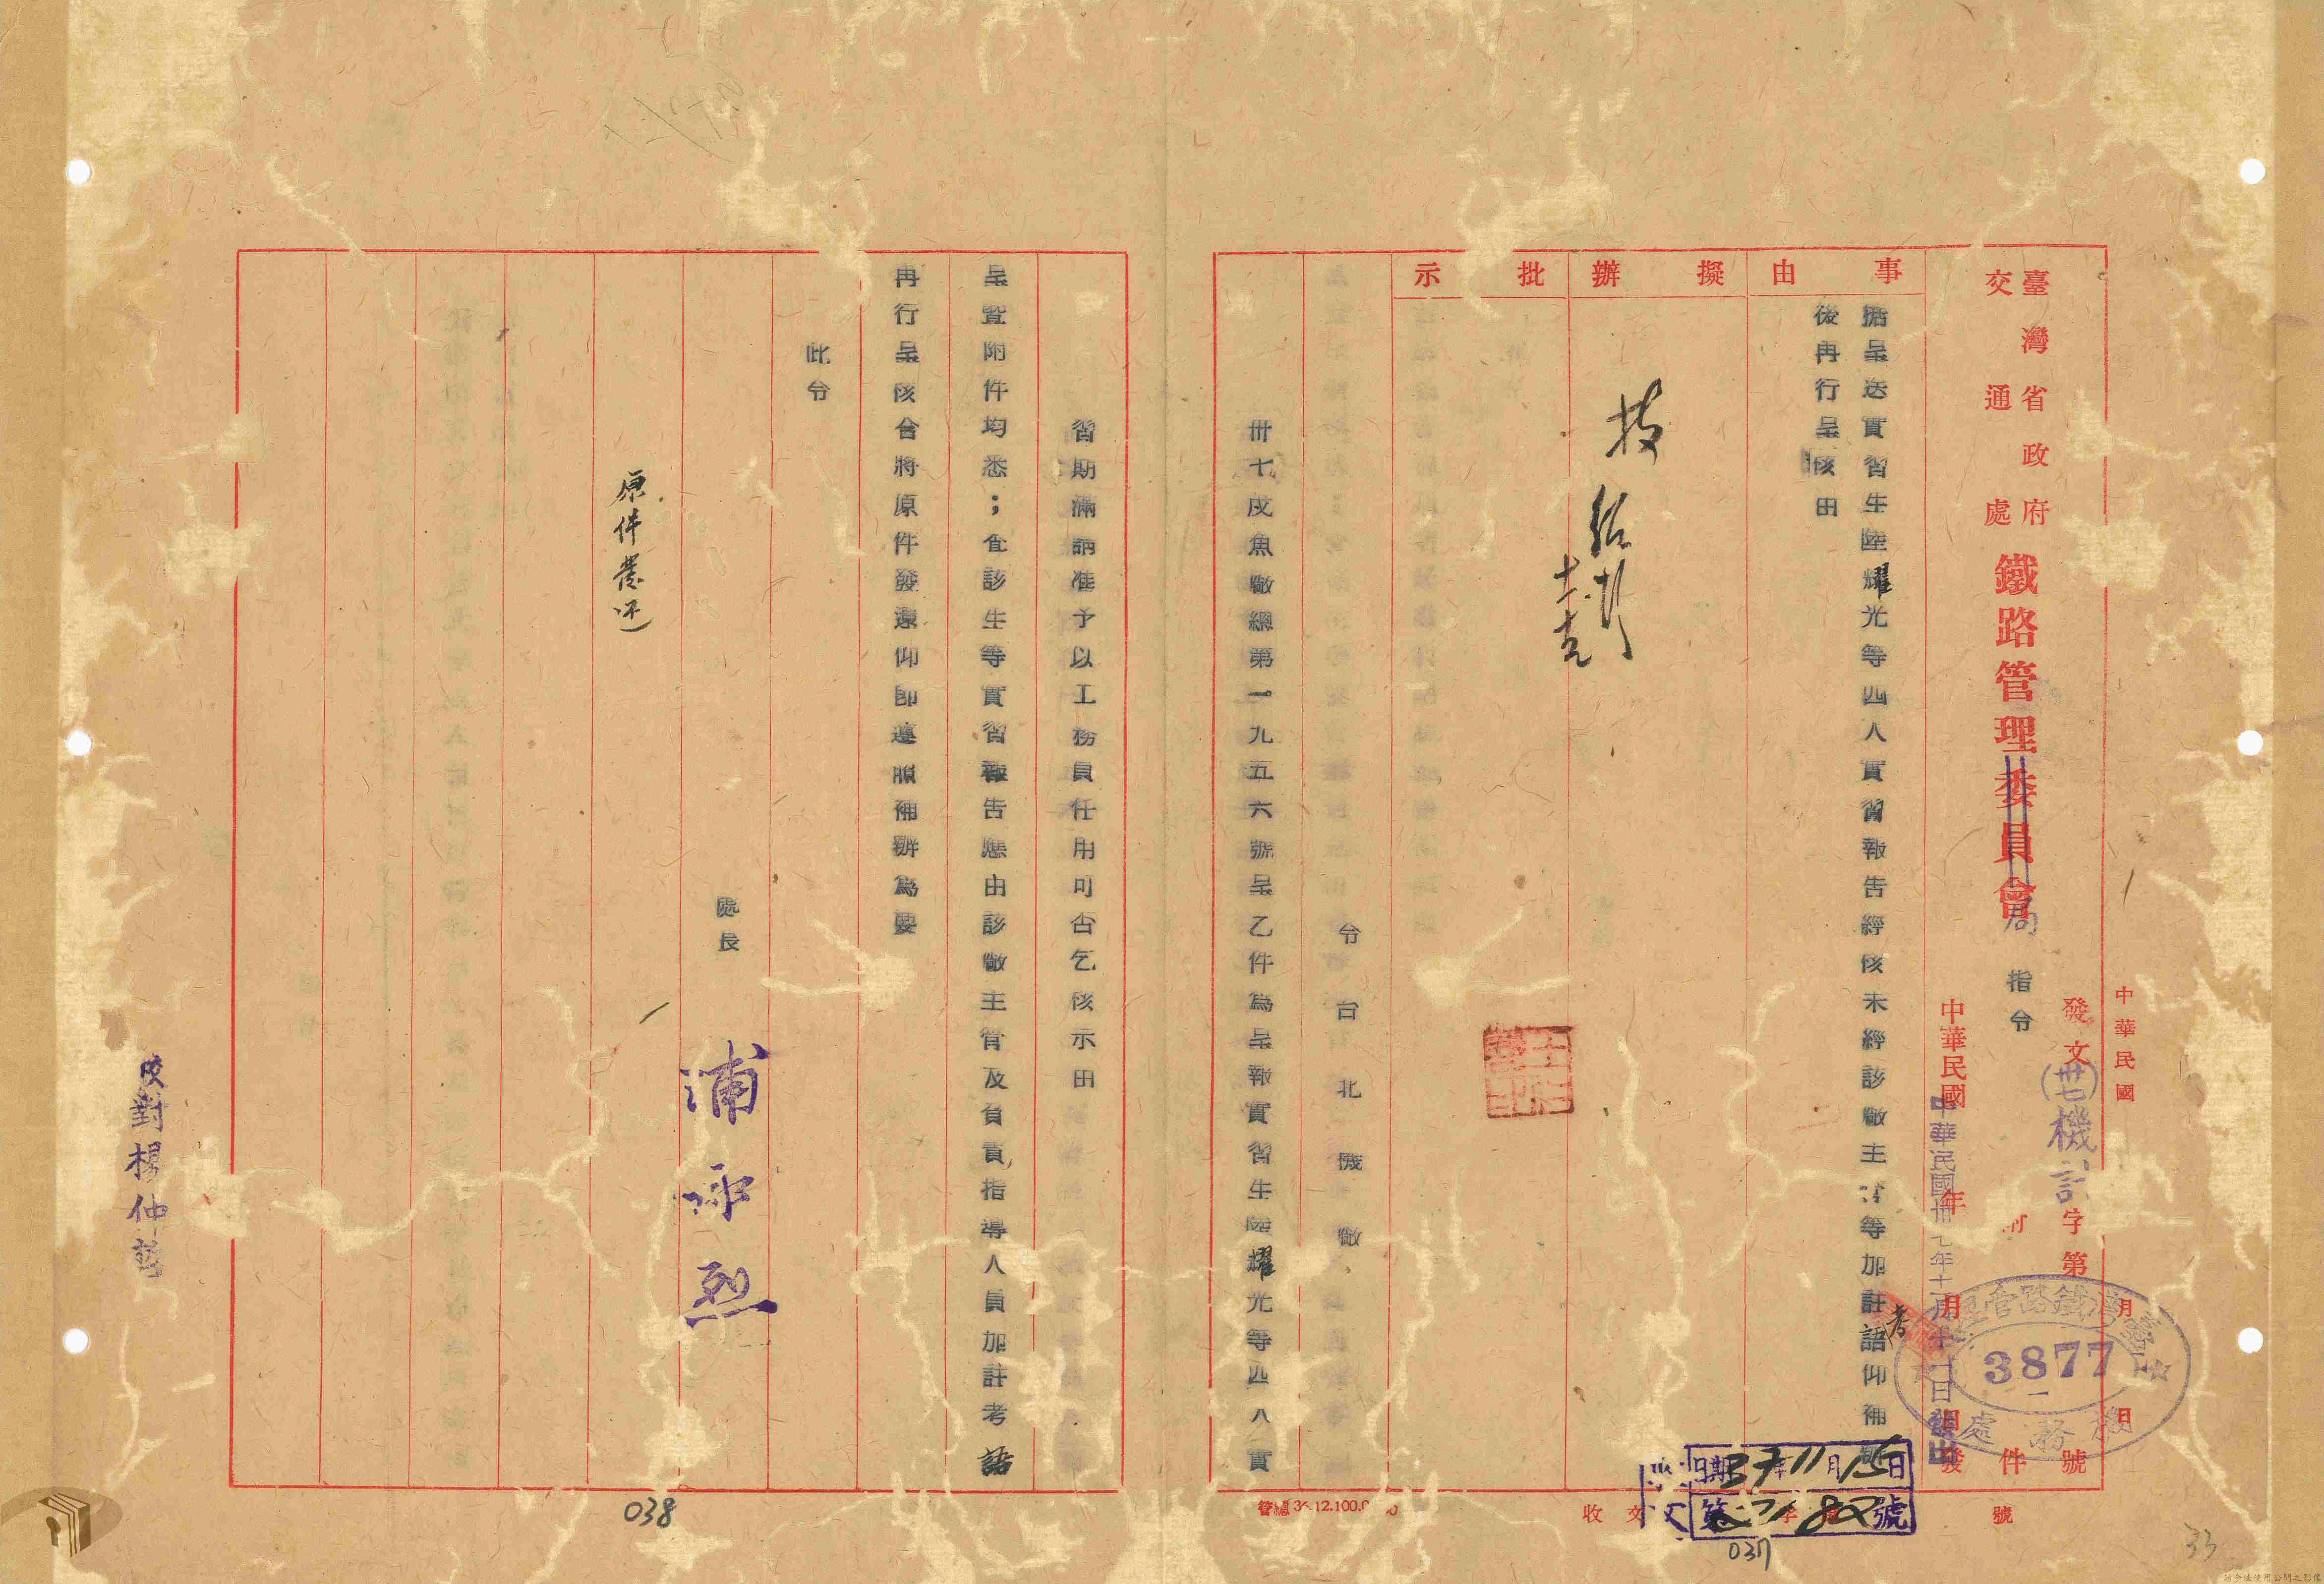 臺灣省政府
交通處
鐵路管理委員會
局
指令
中華民國
發文(卅七)機計字第 號
附 件
中華民國 年 月 日 發
中華民國卅七年十一月十一日發出
3877
事由
据呈送實習生陸耀光等四人實習報告經核未經該廠主管等加註考語仰補
後再行呈核由
擬辦
技
批示
令台北機廠
卅七戌魚廠總第一九五六號呈乙件為呈報實習生陸耀光等四人實
習期滿請准予以工務員任用可否乞核示由
呈暨附件均悉；查該生等實習報告應由該廠主管及負責指導人員加註考語
再行呈核合將原件發還仰即遵照補辦為要
此令
原件發還
處長
浦承烈
校對楊仲
收文
日期37年11月15日
收文 字 號
037
038
33